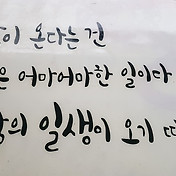 이 온다는 건
은 어마어마한 일이다
의 일생이 오기